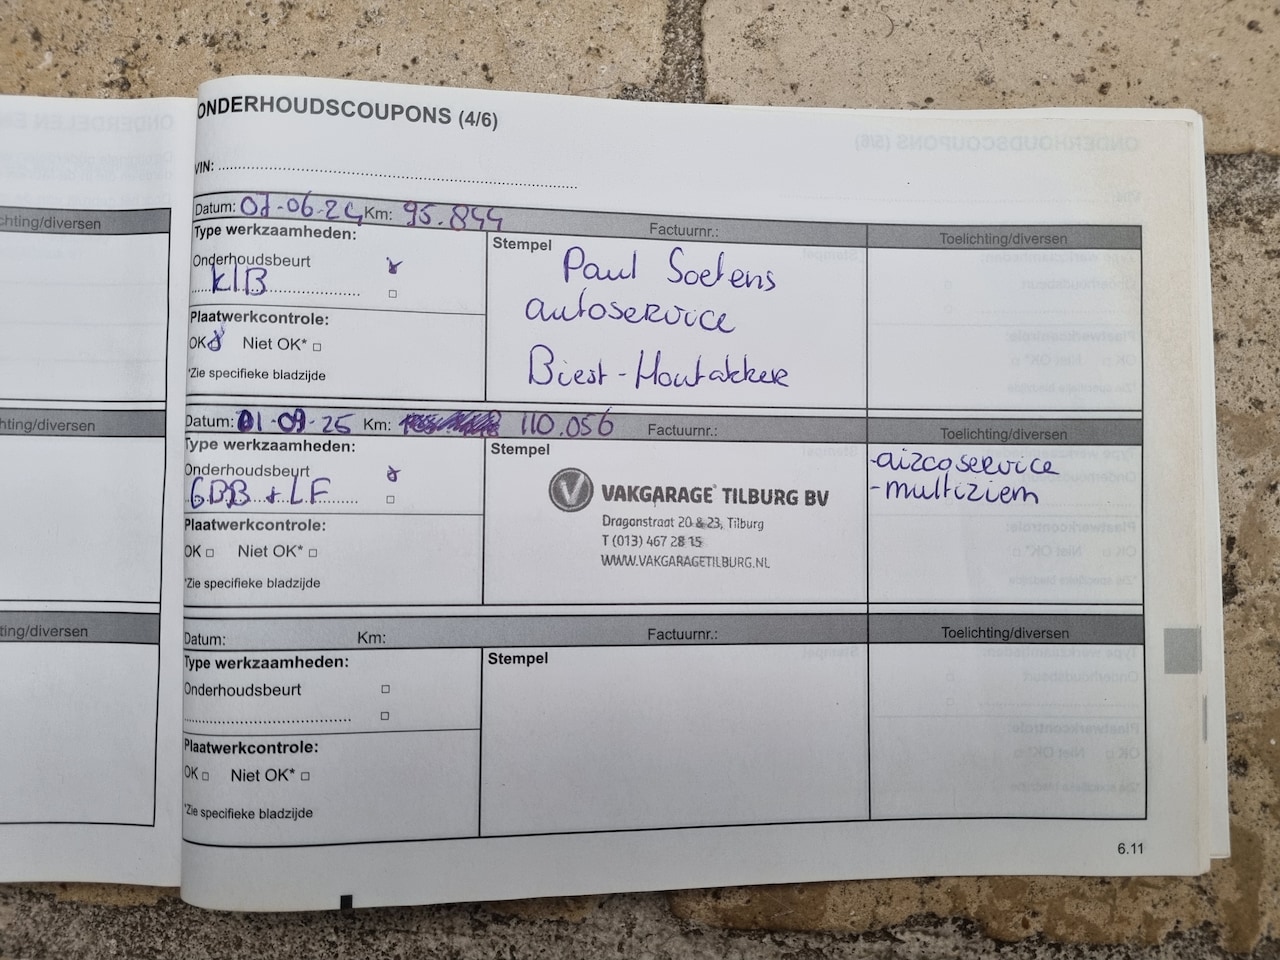 ONDERHOUDSCOUPONS (4/6)
VIN:
Datum: 07-06-24 Km: 95.844 Factuurnr.: Toelichting/diversen
Type werkzaamheden:
Onderhoudsbeurt
KlB
Plaatwerkcontrole:
OK Niet OK*
*Zie specifieke bladzijde
Stempel
Paul Soetens
autoservice
Biest-Houtakker
Datum: 01-09-25 Km: 110.056 Factuurnr.: Toelichting/diversen
Type werkzaamheden:
Onderhoudsbeurt
GBB + LF
Plaatwerkcontrole:
OK Niet OK*
*Zie specifieke bladzijde
Stempel
VAKGARAGE TILBURG BV
Dragonstraat 20 & 23, Tilburg
T (013) 467 28 15
WWW.VAKGARAGETILBURG.NL
-aircoservice
-multiriem
Datum: Km: Factuurnr.: Toelichting/diversen
Type werkzaamheden:
Onderhoudsbeurt
Plaatwerkcontrole:
OK Niet OK*
*Zie specifieke bladzijde
Stempel
6.11
chting/diversen
hting/diversen
ting/diversen